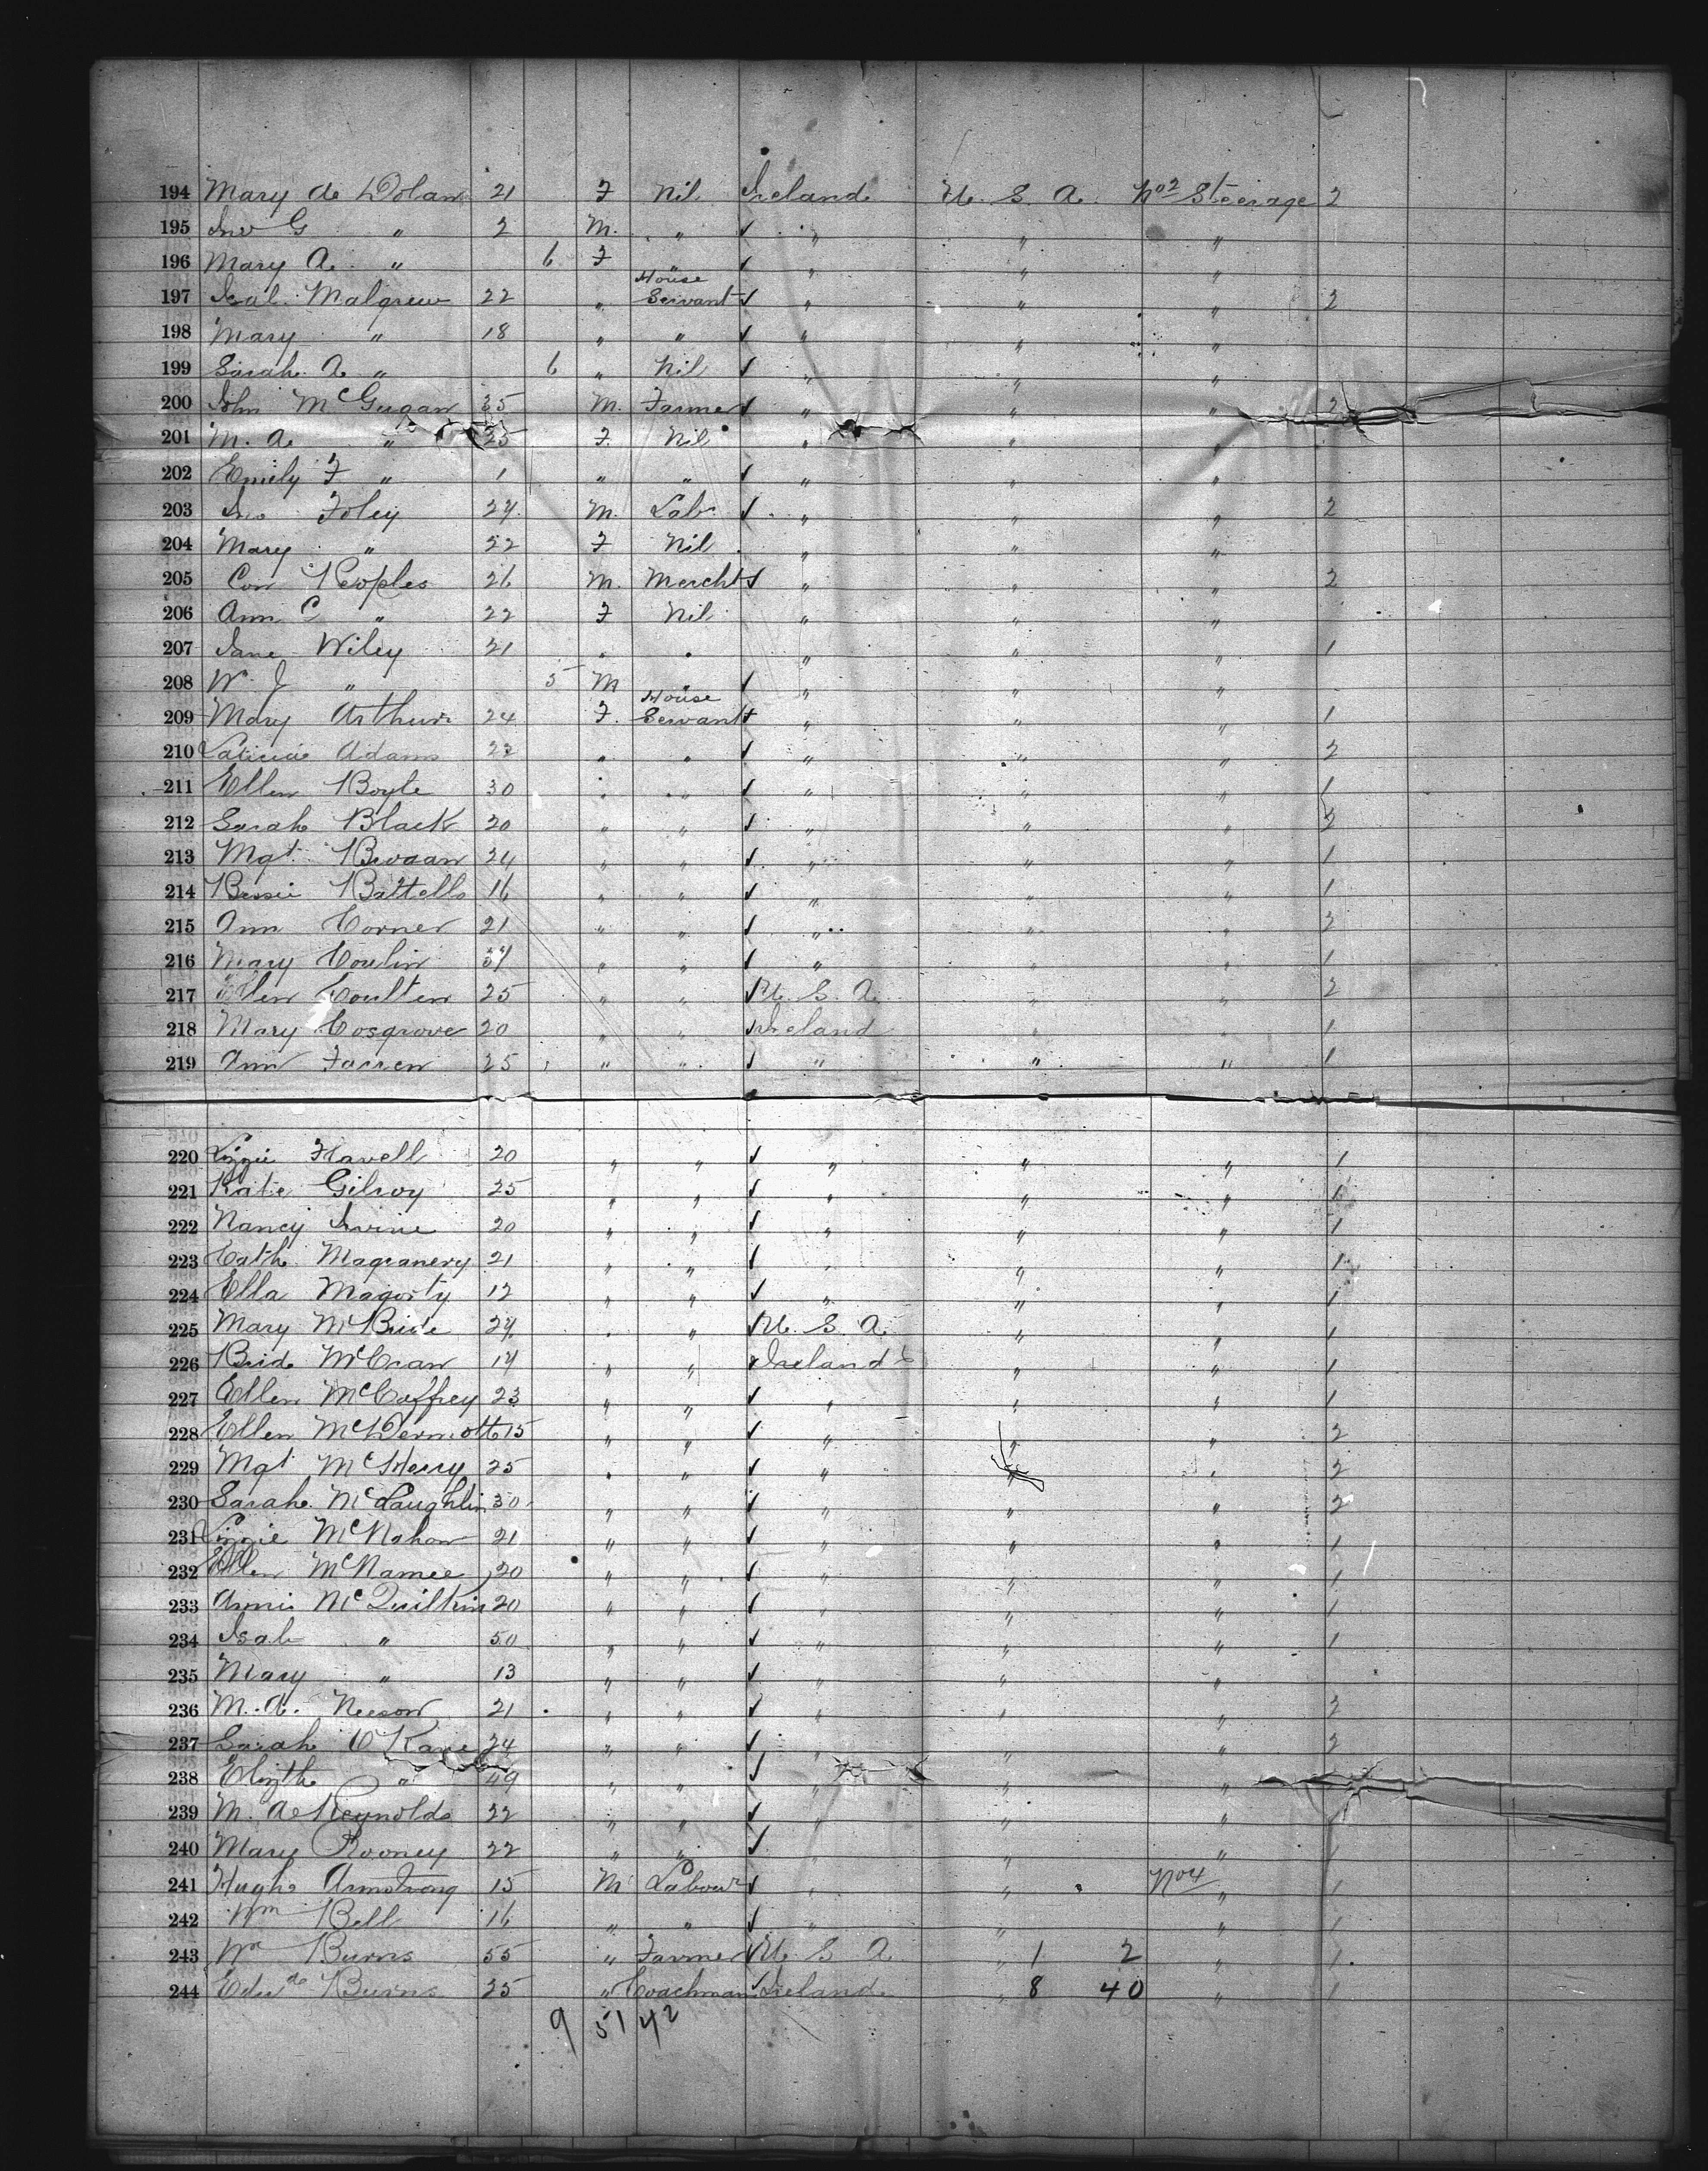 194 Mary de Dolan 21 F Nil Ireland U. S. A. No 2 Steerage 2
195 Jno G " 2 M. " " " "
196 Mary A. " 6 F " " " "
197 Isal. Malgrew 22 " House Servant " " " 2
198 Mary " 18 " " " " "
199 Sarah A " 6 " Nil " " "
200 John McGugan 35 M. Farmer " " " 2
201 M. A. " 25 F Nil " " "
202 Emily F " 1 " " " " "
203 Jno Foley 24 M. Lab. " " " 2
204 Mary " 22 F Nil " " "
205 Con Peoples 26 M. Mercht " " " 2
206 Ann C " 22 F Nil " " "
207 Jane Wiley 21 " " " " " 1
208 W. J " 5 M " " " "
209 Mary Arthur 24 F. House Servant " " " 1
210 Leticia Adams 22 " " " " " 2
211 Ellen Boyle 30 " " " " " 1
212 Sarah Black 20 " " " " " 2
213 Mgt. Brogan 24 " " " " " 1
214 Bessie Battells 16 " " " " " 1
215 Ann Corner 21 " " " " " 2
216 Mary Conlin 34 " " " " " 1
217 Ellen Coulten 25 " " U. S. A. " " 2
218 Mary Cosgrove 20 " " Ireland " " 1
219 Ann Farren 25 " " " " " 1
220 Lizzie Flavell 20 " " " " " 1
221 Katie Gilroy 25 " " " " " 1
222 Nancy Irvine 20 " " " " " 1
223 Cath. Magranery 21 " " " " " 1
224 Ella Magorty 12 " " " " " 1
225 Mary McBride 24 " " U. S. A. " " 1
226 Brid. McCran 14 " " Ireland " " 1
227 Ellen McCaffrey 23 " " " " " 1
228 Ellen McDermott 15 " " " " " 2
229 Mgt McHenry 25 " " " " " 2
230 Sarah McLaughlin 30 " " " " " 2
231 Lizzie McNahon 21 " " " " " 1
232 Ellen McNamee 20 " " " " " 1
233 Annie McQuilkin 20 " " " " " 1
234 Isab " 50 " " " " " 1
235 Mary " 13 " " " " "
236 M. A. Neeson 21 " " " " " 2
237 Sarah O'Kane 24 " " " " " 2
238 Elizth " 49 " " " " "
239 M. A. Reynolds 22 " " " " "
240 Mary Rooney 22 " " " " " 1
241 Hugh Armstrong 15 M Labour " " No 4 " 1
242 Wm Bell 16 " " " " " 1
243 Wm Burns 55 " Farmer U. S. A " 1 2 " 1
244 Edwd Burns 25 " Coachman Ireland " 8 40 " 1
9 51 42